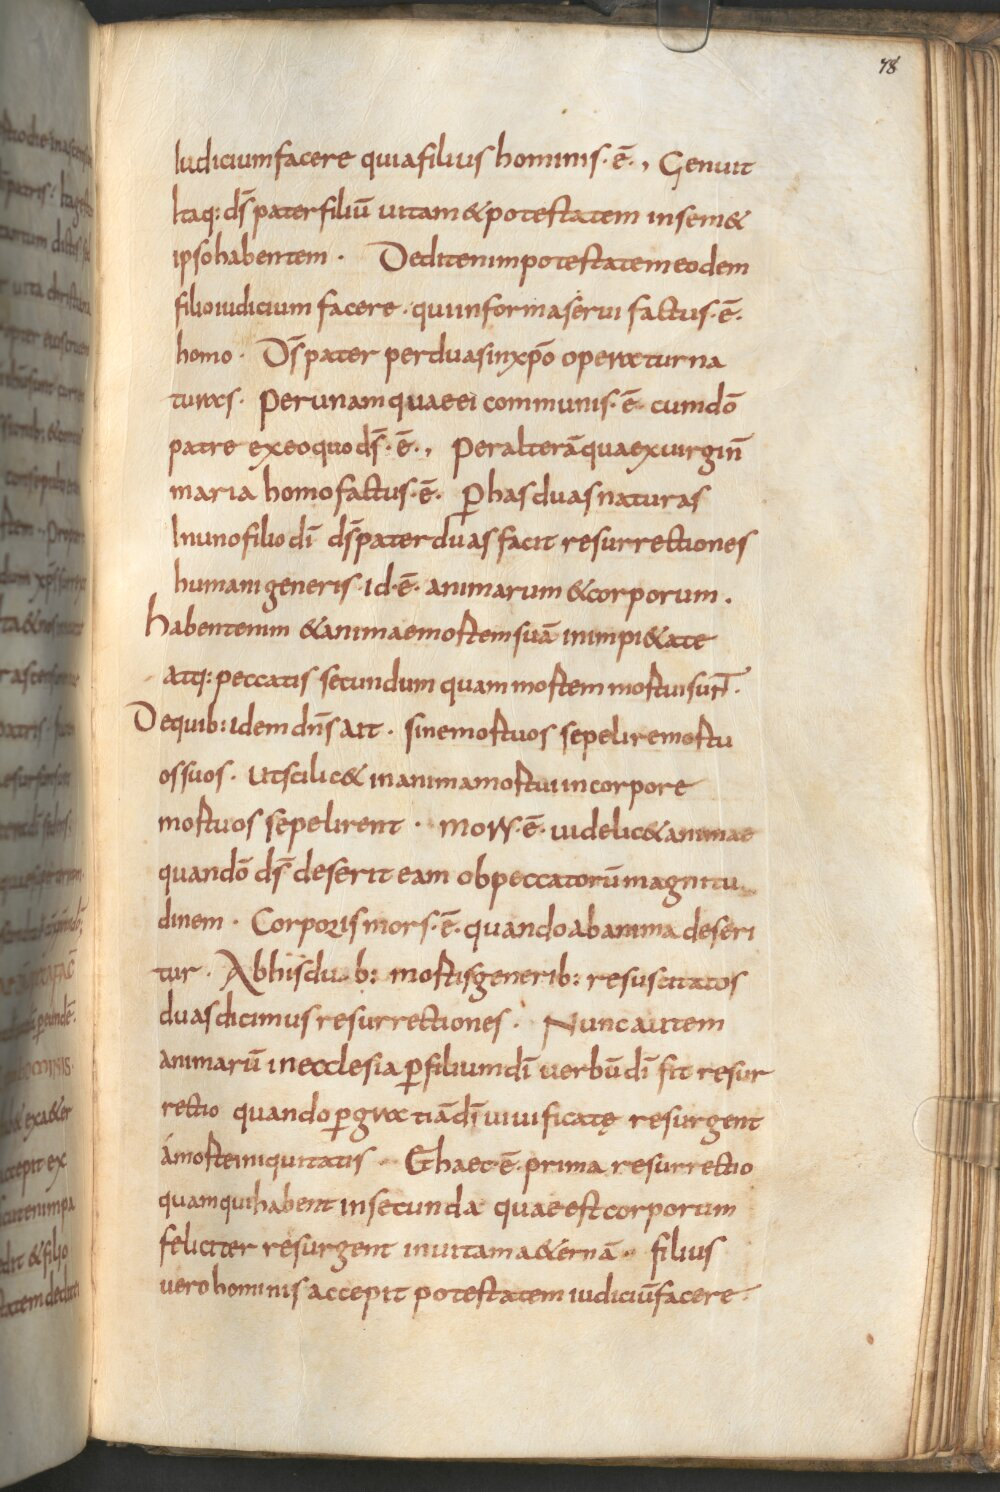 78
Iudicium facere quia filius hominis · ē · , Genuit
Itaq: ds̄ pater filiū uitam & potestatem in sem&
ipso habentem · Dedit enim potestatem eodem
filio iudicium facere · qui in forma serui factus · ē ·
homo · Ds̄ pater per duas in xp̄o operatur na
turas · Per unam quae ei communis · ē · cum dō
patre ex eo quo ds̄ · ē · , Per alterā quae ex uirgin̄
maria homo factus · ē · P̱ has duas naturas
In uno filio dī ds̄ pater duas facit resurrectiones
humani generis · id · ē · animarum & corporum .
habent enim & animae mortem suā in impi&ate
atq: peccatis secundum quam mortem mortui sun̄t ·
De quib: idem dn̄s ait · sine mortuos sepelire mortu
os suos · ut scilic& in anima mortui in corpore
mortuos sepelirent · mors · ē · uidelic& animae
quandō ds̄ deserit eam ob peccatorū magnitu
dinem · Corporis mors · ē · quando ab anima deseri
tur · Ab his du b: mortis generib: resuscitatos
duas dicimus resurrectiones · Nunc autem
animarū in ecclesia p̱ filium dī uerbū dī fit resur
rectio quando p̱ gratiā dī uiuificatę resurgent
á morte iniquitatis · Et haec · ē · prima resurrectio
quam qui habent in secunda quae est corporum
feliciter resurgent in uitam a&ernā · filius
uero hominis accepit potestatem iudiciū facere ·